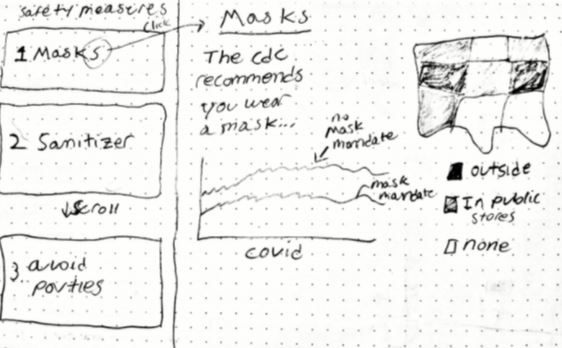 safety measures
click
1 Masks
2 Sanitizer
Scroll
3 avoid
parties
Masks
The cdc
recommends
you wear
a mask...
no
mask
mandate
mask
mandate
covid
outside
In public
stores
none